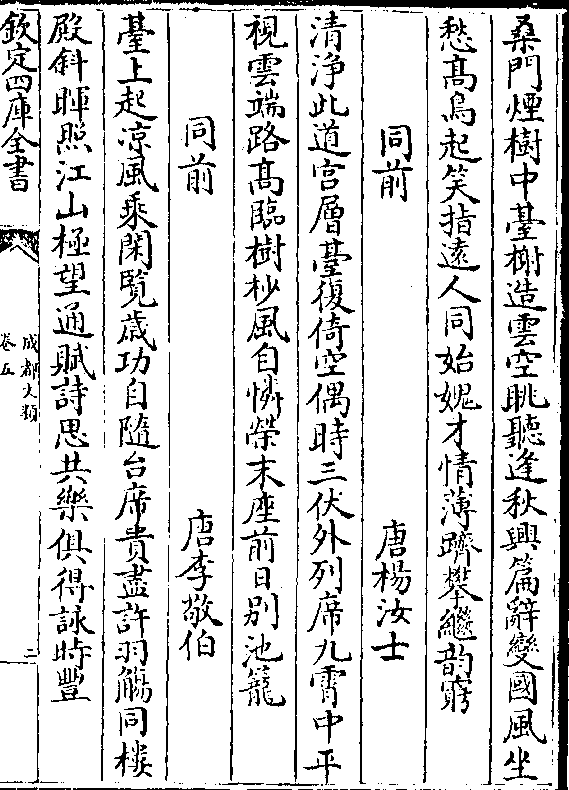 桑門煙樹中臺榭造雲空眺聽逢秋興篇辭變國風坐
愁髙鳥起笑指逺人同始媿才情薄躋攀繼韵窮
同前　唐楊汝士
清淨此道宫層臺復倚空偶時三伏外列席九霄中平
視雲端路髙臨樹杪風自憐榮末座前日别池籠
同前　唐李敬伯
臺上起凉風乘閑覽歳功自隨台席貴盡許羽觴同樓
殿斜暉照江山極望通賦詩思共樂俱得詠時豐
欽定四庫全書
成都文類
卷五
二